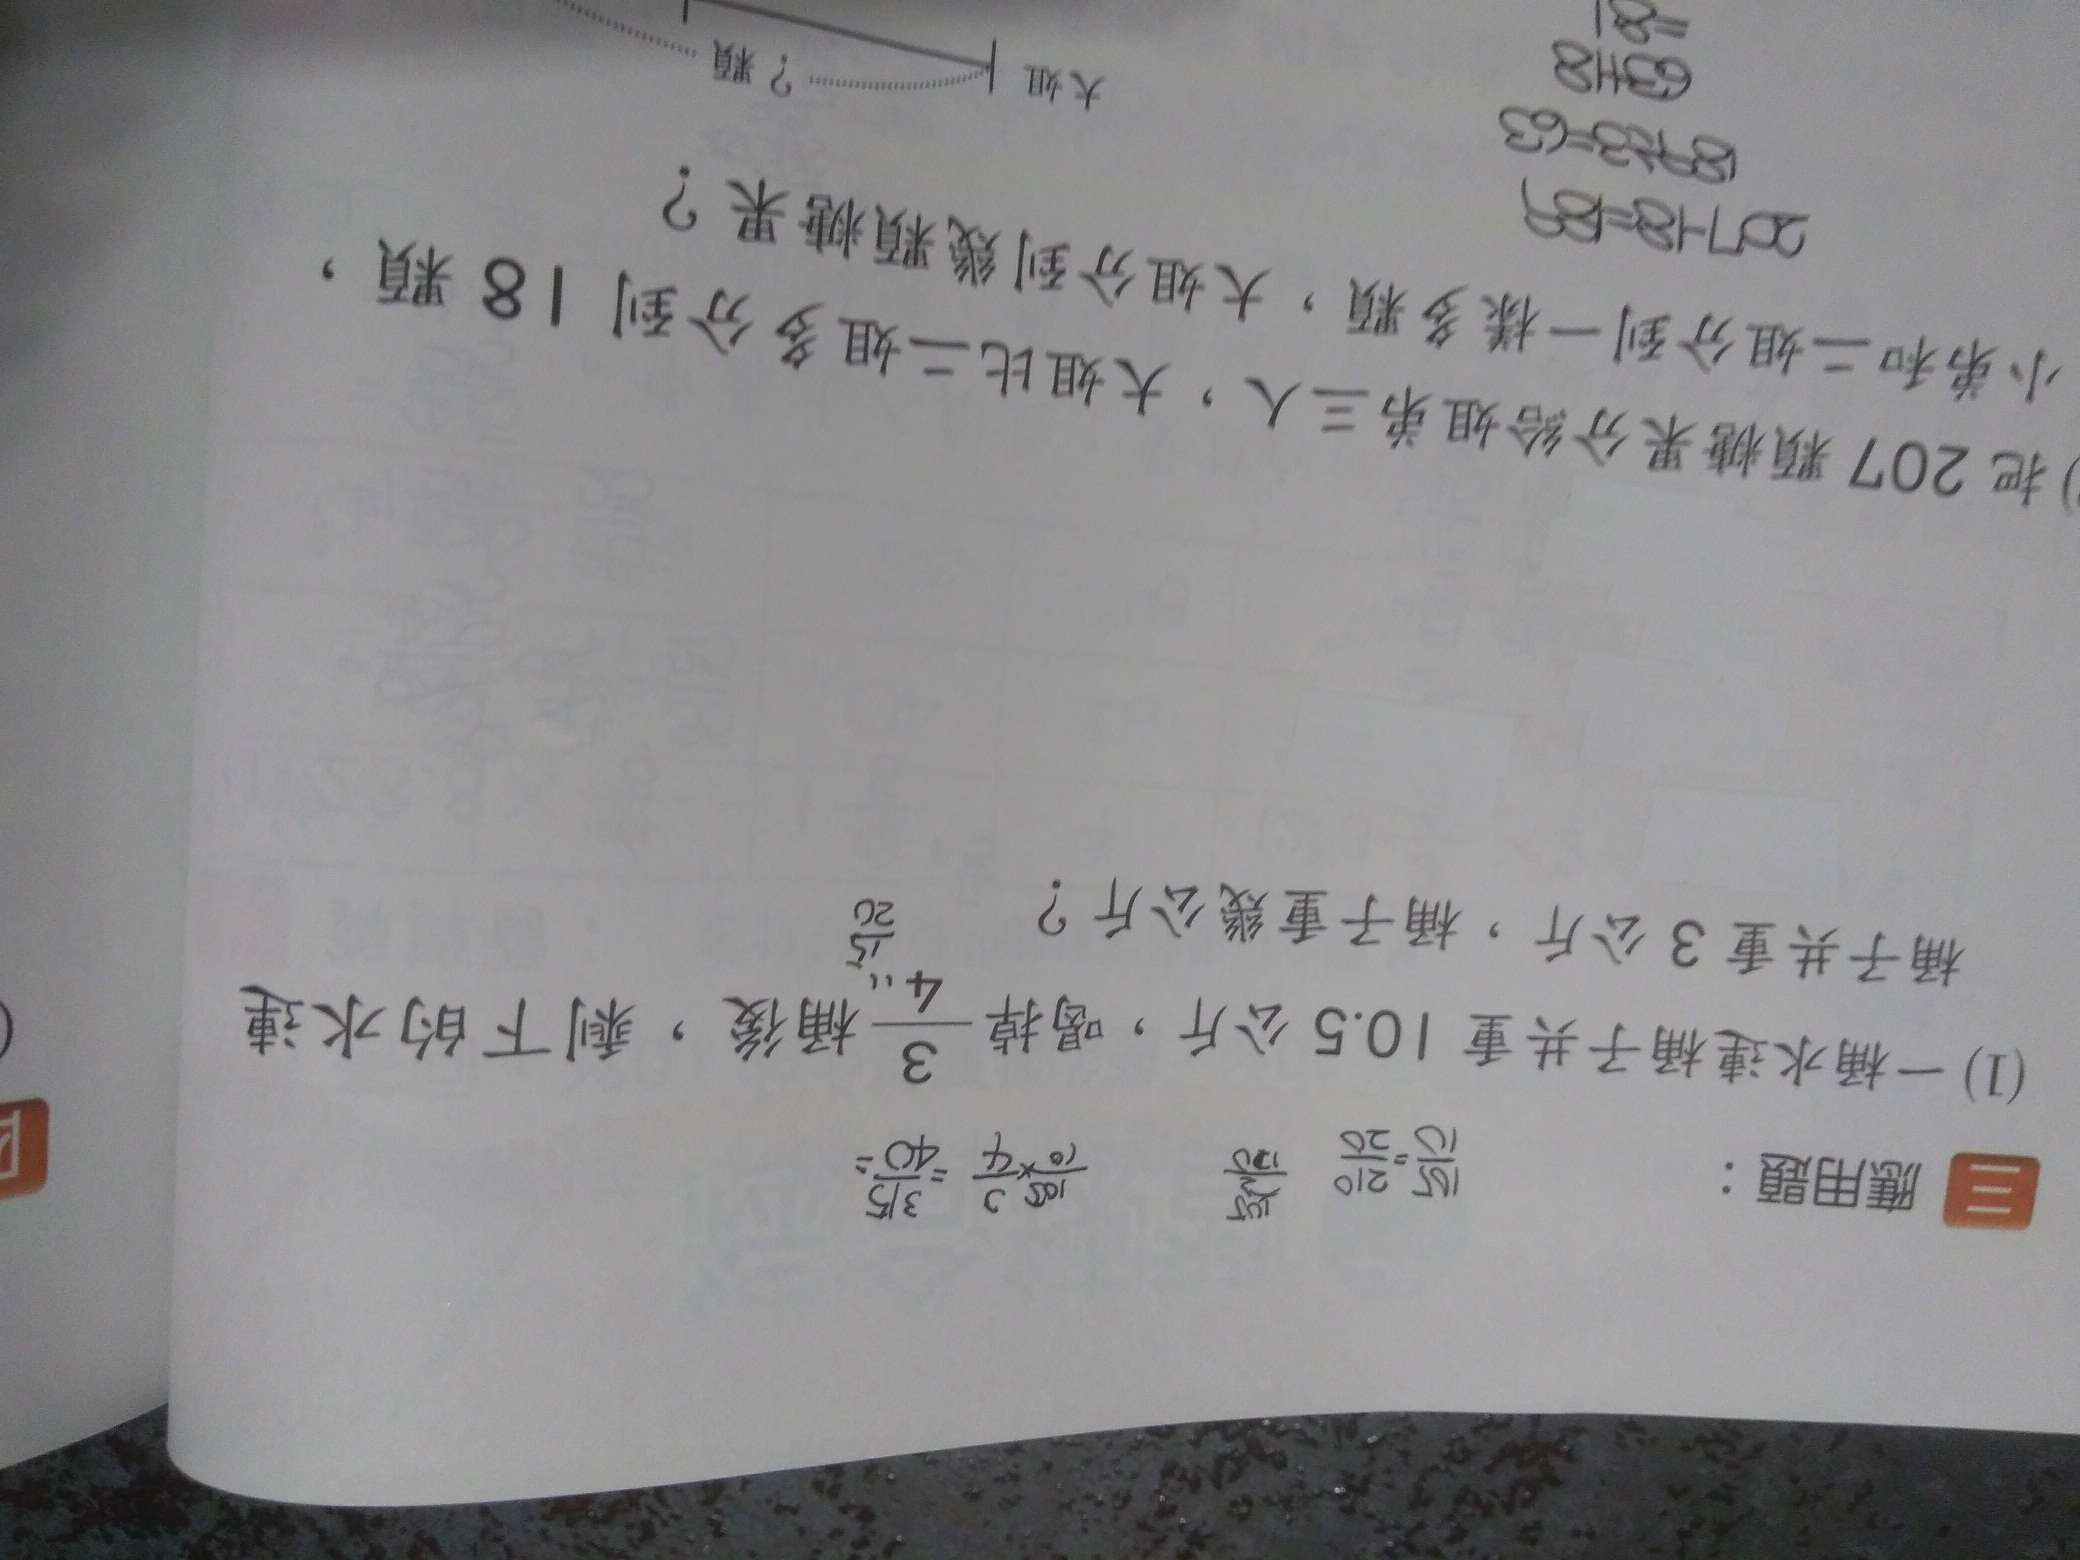 三 應用題：
105/10=210/20 105/10×3/4=315/40=
(1) 一桶水連桶子共重 10.5 公斤，喝掉 3/4 桶後，剩下的水連
15/20
桶子共重 3 公斤，桶子重幾公斤？
把 207 顆糖果分給姐弟三人，大姐比二姐多分到 18 顆，
小弟和二姐分到一樣多顆，大姐分到幾顆糖果？
207-18=189
189÷3=63
63+18
=81
大姐
？顆